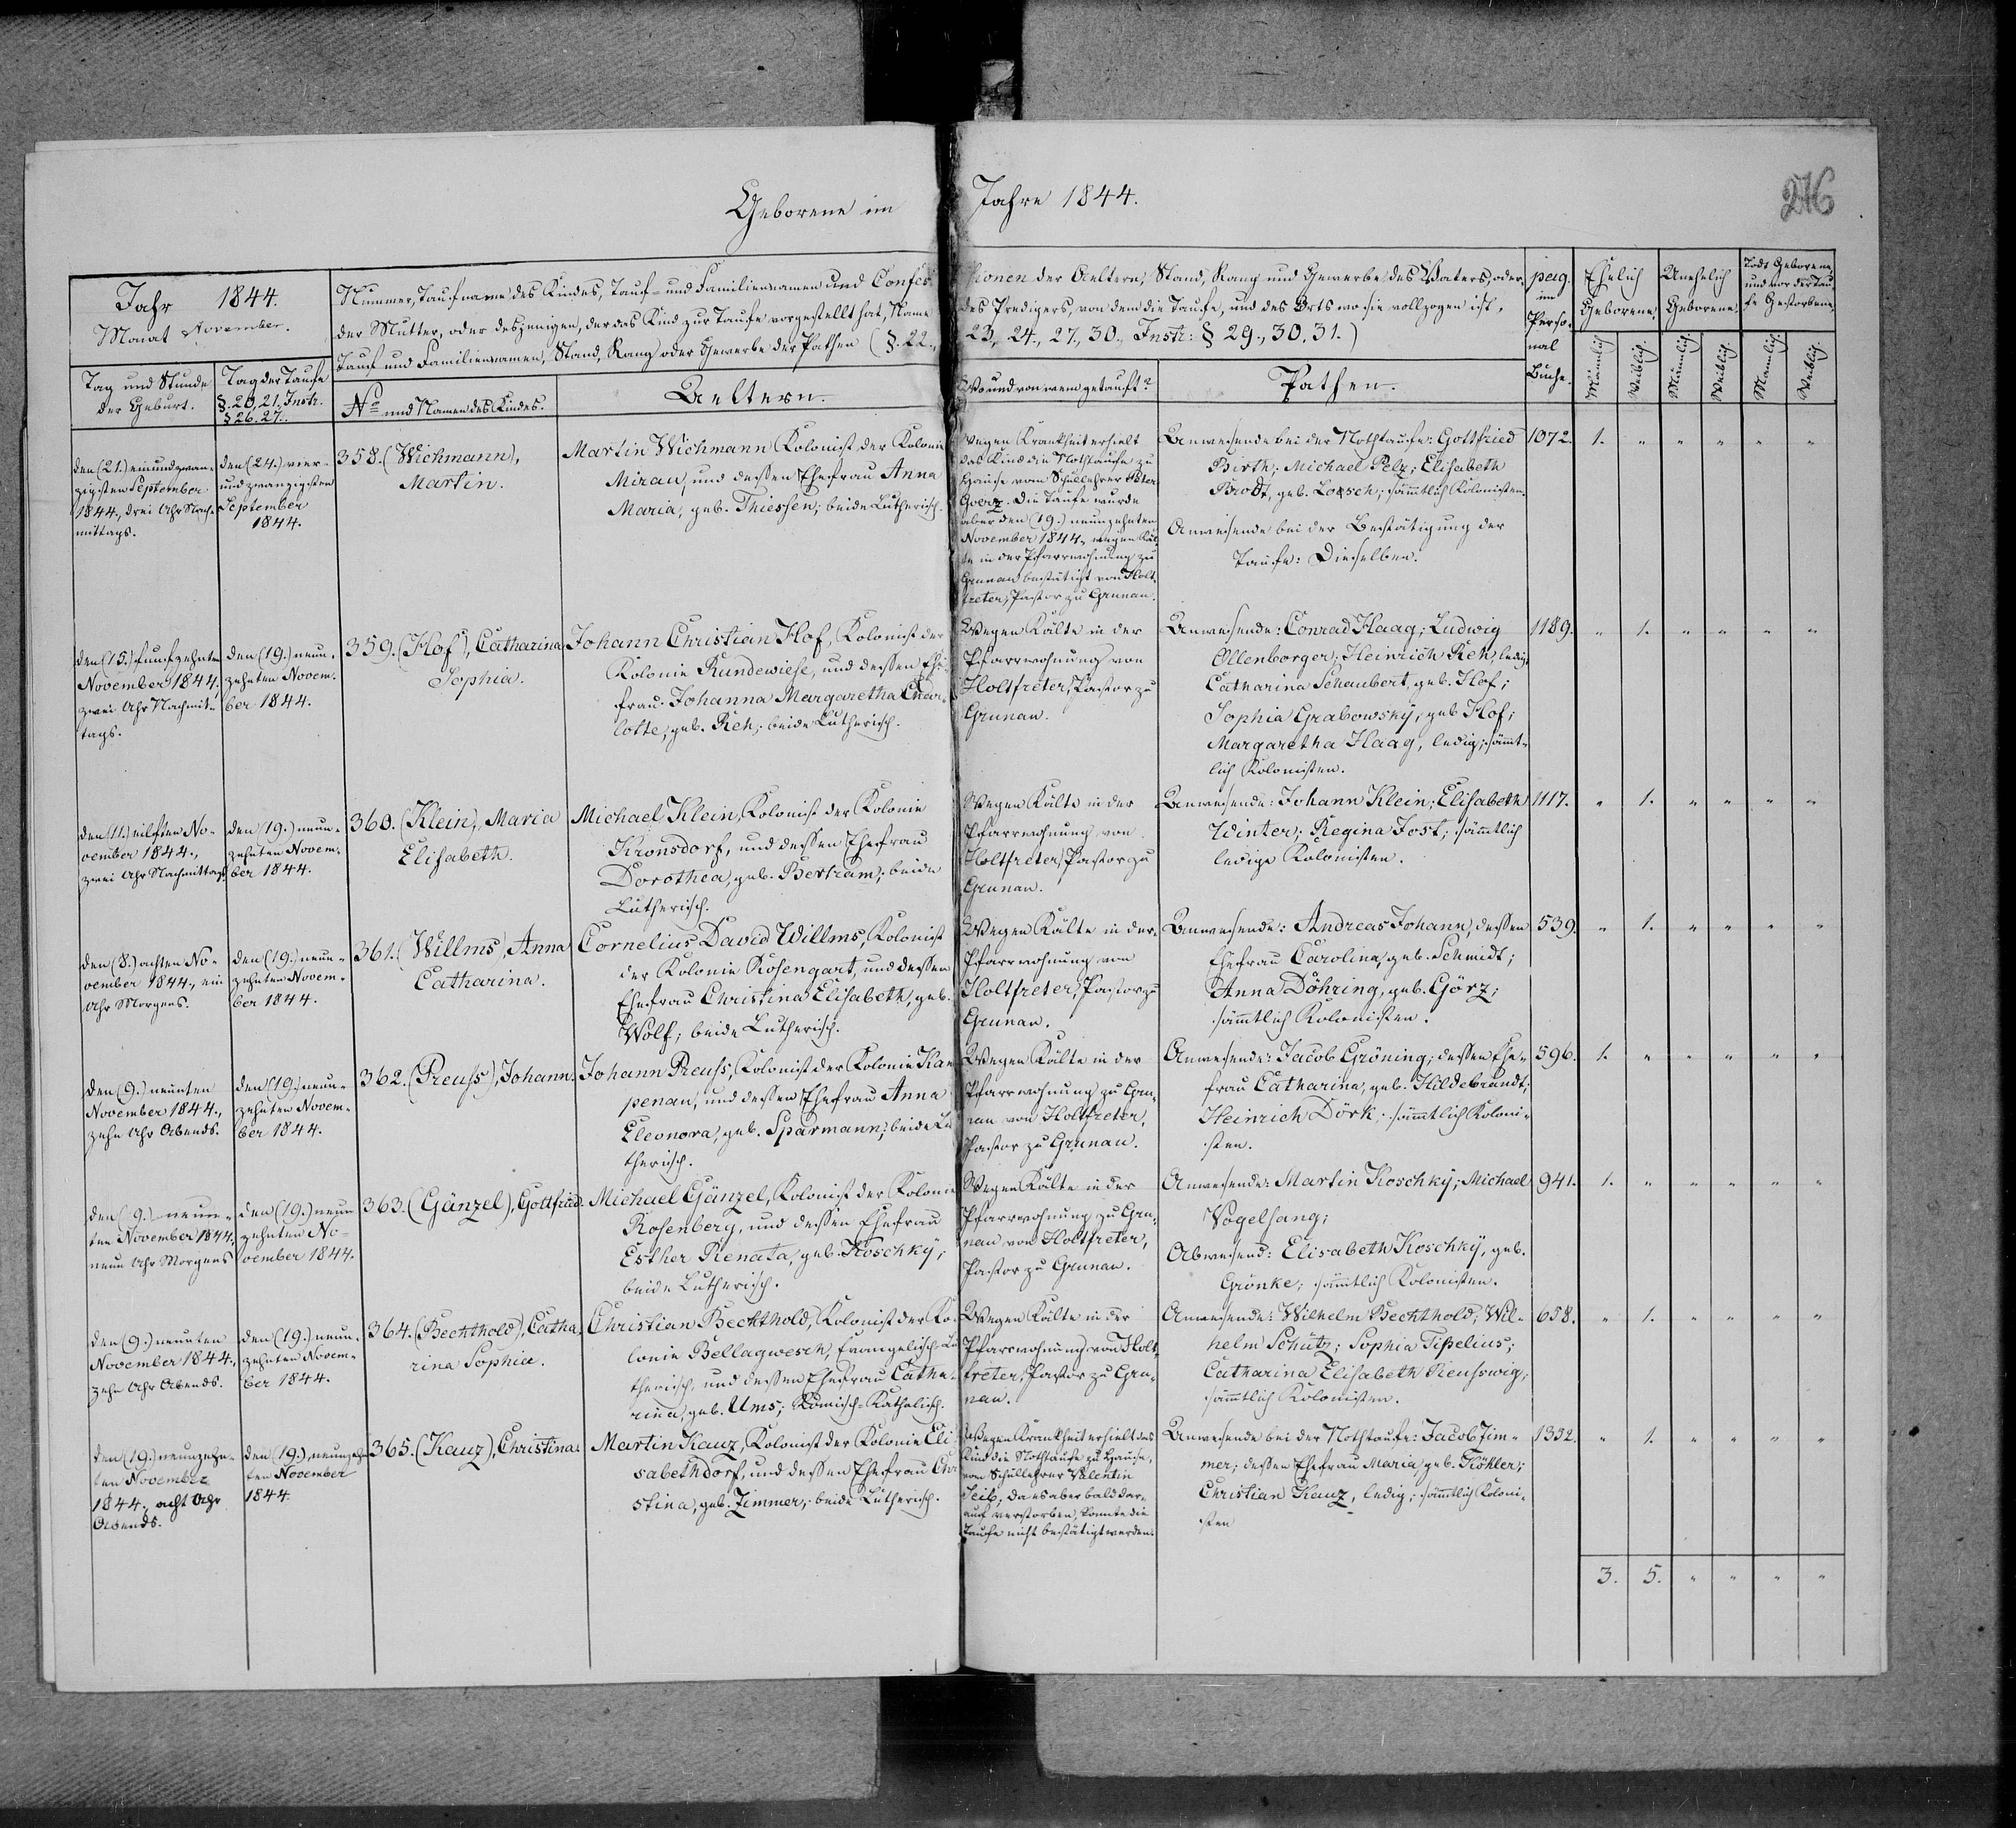 Geborene im Jahre 1844.
246
Jahr 1844.
Monat November.
Nummer, Taufname des Kindes, Tauf- und Familiennamen und Confes-
sionen der Aeltern, Stand, Rang und Gewerbe des Vaters, oder
der Mutter, oder desjenigen, der das Kind zur Taufe vorgestellt hat, Name
des Predigers, von dem die Taufe, und des Orts wo sie vollzogen ist,
Tauf und Familiennamen, Stand, Rang oder Gewerbe der Pathen (§. 22.,
23., 24., 27., 30., Instr: § 29., 30., 31.)
Tag und Stunde
der Geburt.
Tag der Taufe
§. 20. 21. Instr.
§ 26. 27.
No und Namen des Kindes.
Aeltern.
Wo und von wem getauft?
Pathen.
pag.
im
Perso-
nal
Buche.
Ehelich
Geborene.
Unehelich
Geborene.
Todt Geborene,
und vor der Tau-
fe Gestorbene.
Männlich
Weiblich.
Männlich
Weiblich.
Männlich
Weiblich.
den (21.) einundzwan-
zigsten September
1844., drei Uhr Nach-
mittags.
den (24.) vier-
undzwanzigsten
September
1844.
358. (Wichmann),
Martin.
Martin Wichmann Kolonist der Kolonie
Mirau, und dessen Ehefrau Anna
Maria, geb. Thiessen; beide Lutherisch.
Wegen Krankheit erhielt
das Kind die Nothtaufe zu
Hause vom Schullehrer Peter
Goerz. Die Taufe wurde
aber den (19.) neunzehnten
November 1844. wegen Käl-
te in der Pfarrwohnung zu
Grunau bestätigt von Holt-
freter, Pastor zu Grunau.
Anwesende bei der Nothtaufe: Gottfried
Birth; Michael Pelz; Elisabeth
Brodt, geb. Loesch; sämmtlich Kolonisten.
Anwesende bei der Bestätigung der
Taufe: Dieselben.
1072. 1. " " " " "
den (15.) funfzehnten
November 1844.
zwei Uhr Nachmit-
tags.
den (19.) neun-
zehnten Novem-
ber 1844.
359. (Hof), Catharina
Sophia.
Johann Christian Hof, Kolonist der
Kolonie Rundewiese, und dessen Ehe-
frau Johanna Margaretha Char-
lotte, geb. Reh; beide Lutherisch.
Wegen Kälte in der
Pfarrwohnung von
Holtfreter, Pastor zu
Grunau.
Anwesende: Conrad Haag; Ludwig
Ollenborger; Heinrich Reh, ledig;
Catharina Schaubert, geb. Hof;
Sophia Grabowsky, geb Hof;
Margaretha Haag, ledig; sämmt-
lich Kolonisten.
1189. " 1. " " " "
den (11.) eilften No-
vember 1844.,
zwei Uhr Nachmittags.
den (19.) neun-
zehnten Novem-
ber 1844.
360. (Klein), Maria
Elisabeth.
Michael Klein, Kolonist der Kolonie
Kronsdorf, und dessen Ehefrau
Dorothea, geb. Bertram; beide
Lutherisch.
Wegen Kälte in der
Pfarrwohnung von
Holtfreter, Pastor zu
Grunau.
Anwesende: Johann Klein; Elisabeth
Winter; Regina Jost; sämmtlich
ledige Kolonisten.
1117. " 1. " " " "
den (8.) achten No-
vember 1844., ein
Uhr Morgens.
den (19.) neun-
zehnten Novem-
ber 1844.
361. (Willms), Anna
Catharina.
Cornelius David Willms, Kolonist
der Kolonie Rosengart, und dessen
Ehefrau Christina Elisabeth, geb.
Wolf; beide Lutherisch.
Wegen Kälte in der
Pfarrwohnung von
Holtfreter, Pastor zu
Grunau.
Anwesende: Andreas Johann, dessen
Ehefrau Carolina, geb. Schmidt;
Anna Döhring, geb. Görz;
sämmtlich Kolonisten.
539. " 1. " " " "
den (9.) neunten
November 1844.,
zehn Uhr Abends.
den (19.) neun-
zehnten Novem-
ber 1844.
362. (Preuss), Johann.
Johann Preuss, Kolonist der Kolonie Kam-
penau, und dessen Ehefrau Anna
Eleonora, geb. Sparmann; beide Lu-
therisch.
Wegen Kälte in der
Pfarrwohnung zu Gru-
nau von Holtfreter,
Pastor zu Grunau.
Anwesende: Jacob Gröning; dessen Ehe-
frau Catharina, geb. Hildebrandt;
Heinrich Dörk; sämmtlich Koloni-
sten.
596. 1. " " " " "
den (9.) neun-
ten November 1844.
neun Uhr Morgens
den (19.) neun
zehnten No-
vember 1844.
363. (Gänzel), Gottfried.
Michael Gänzel, Kolonist der Kolonie
Rosenberg, und dessen Ehefrau
Esther Renata, geb. Koschky;
beide Lutherisch.
Wegen Kälte in der
Pfarrwohnung zu Gru-
nau von Holtfreter,
Pastor zu Grunau.
Anwesende: Martin Koschky; Michael
Vogelsang;
Abwesend: Elisabeth Koschky, geb.
Grönke; sämmtlich Kolonisten.
941. 1. " " " " "
den (9.) neunten
November 1844.,
zehn Uhr Abends.
den (19.) neun-
zehnten Novem-
ber 1844.
364. (Bechthold), Catha-
rina Sophia.
Christian Bechthold, Kolonist der Ko-
lonie Bellagwesch, Evangelisch-Lu-
therisch, und dessen Ehefrau Catha-
rina, geb. Ums; Römisch-Katholisch.
Wegen Kälte in der
Pfarrwohnung von Holt-
freter, Pastor zu Gru-
nau.
Anwesende: Wilhelm Bechthold; Wil-
helm Schütz; Sophia Tißelius;
Catharina Elisabeth Reusswig;
sämmtlich Kolonisten.
658. " 1. " " " "
den (19.) neunzehn-
ten November
1844., acht Uhr
Abends.
den (19.) neunzehn
ten November
1844.
365. (Kauz), Christina.
Martin Kauz, Kolonist der Kolonie Eli
sabethdorf, und dessen Ehefrau Chri
stina, geb. Zimmer; beide Lutherisch.
Wegen Krankheit erhielt das
Kind die Nothtaufe zu Hause,
vom Schullehrer Valentin
Seib; da es aber bald dar-
auf verstorben, konnte die
Taufe nicht bestätigt werden.
Anwesende bei der Nothtaufe: Jacob Zim-
mer; dessen Ehefrau Maria, geb. Köhler;
Christian Kauz, ledig; sämmtlich Koloni-
sten
1332. " 1. " " " "
3. 5. " " " "